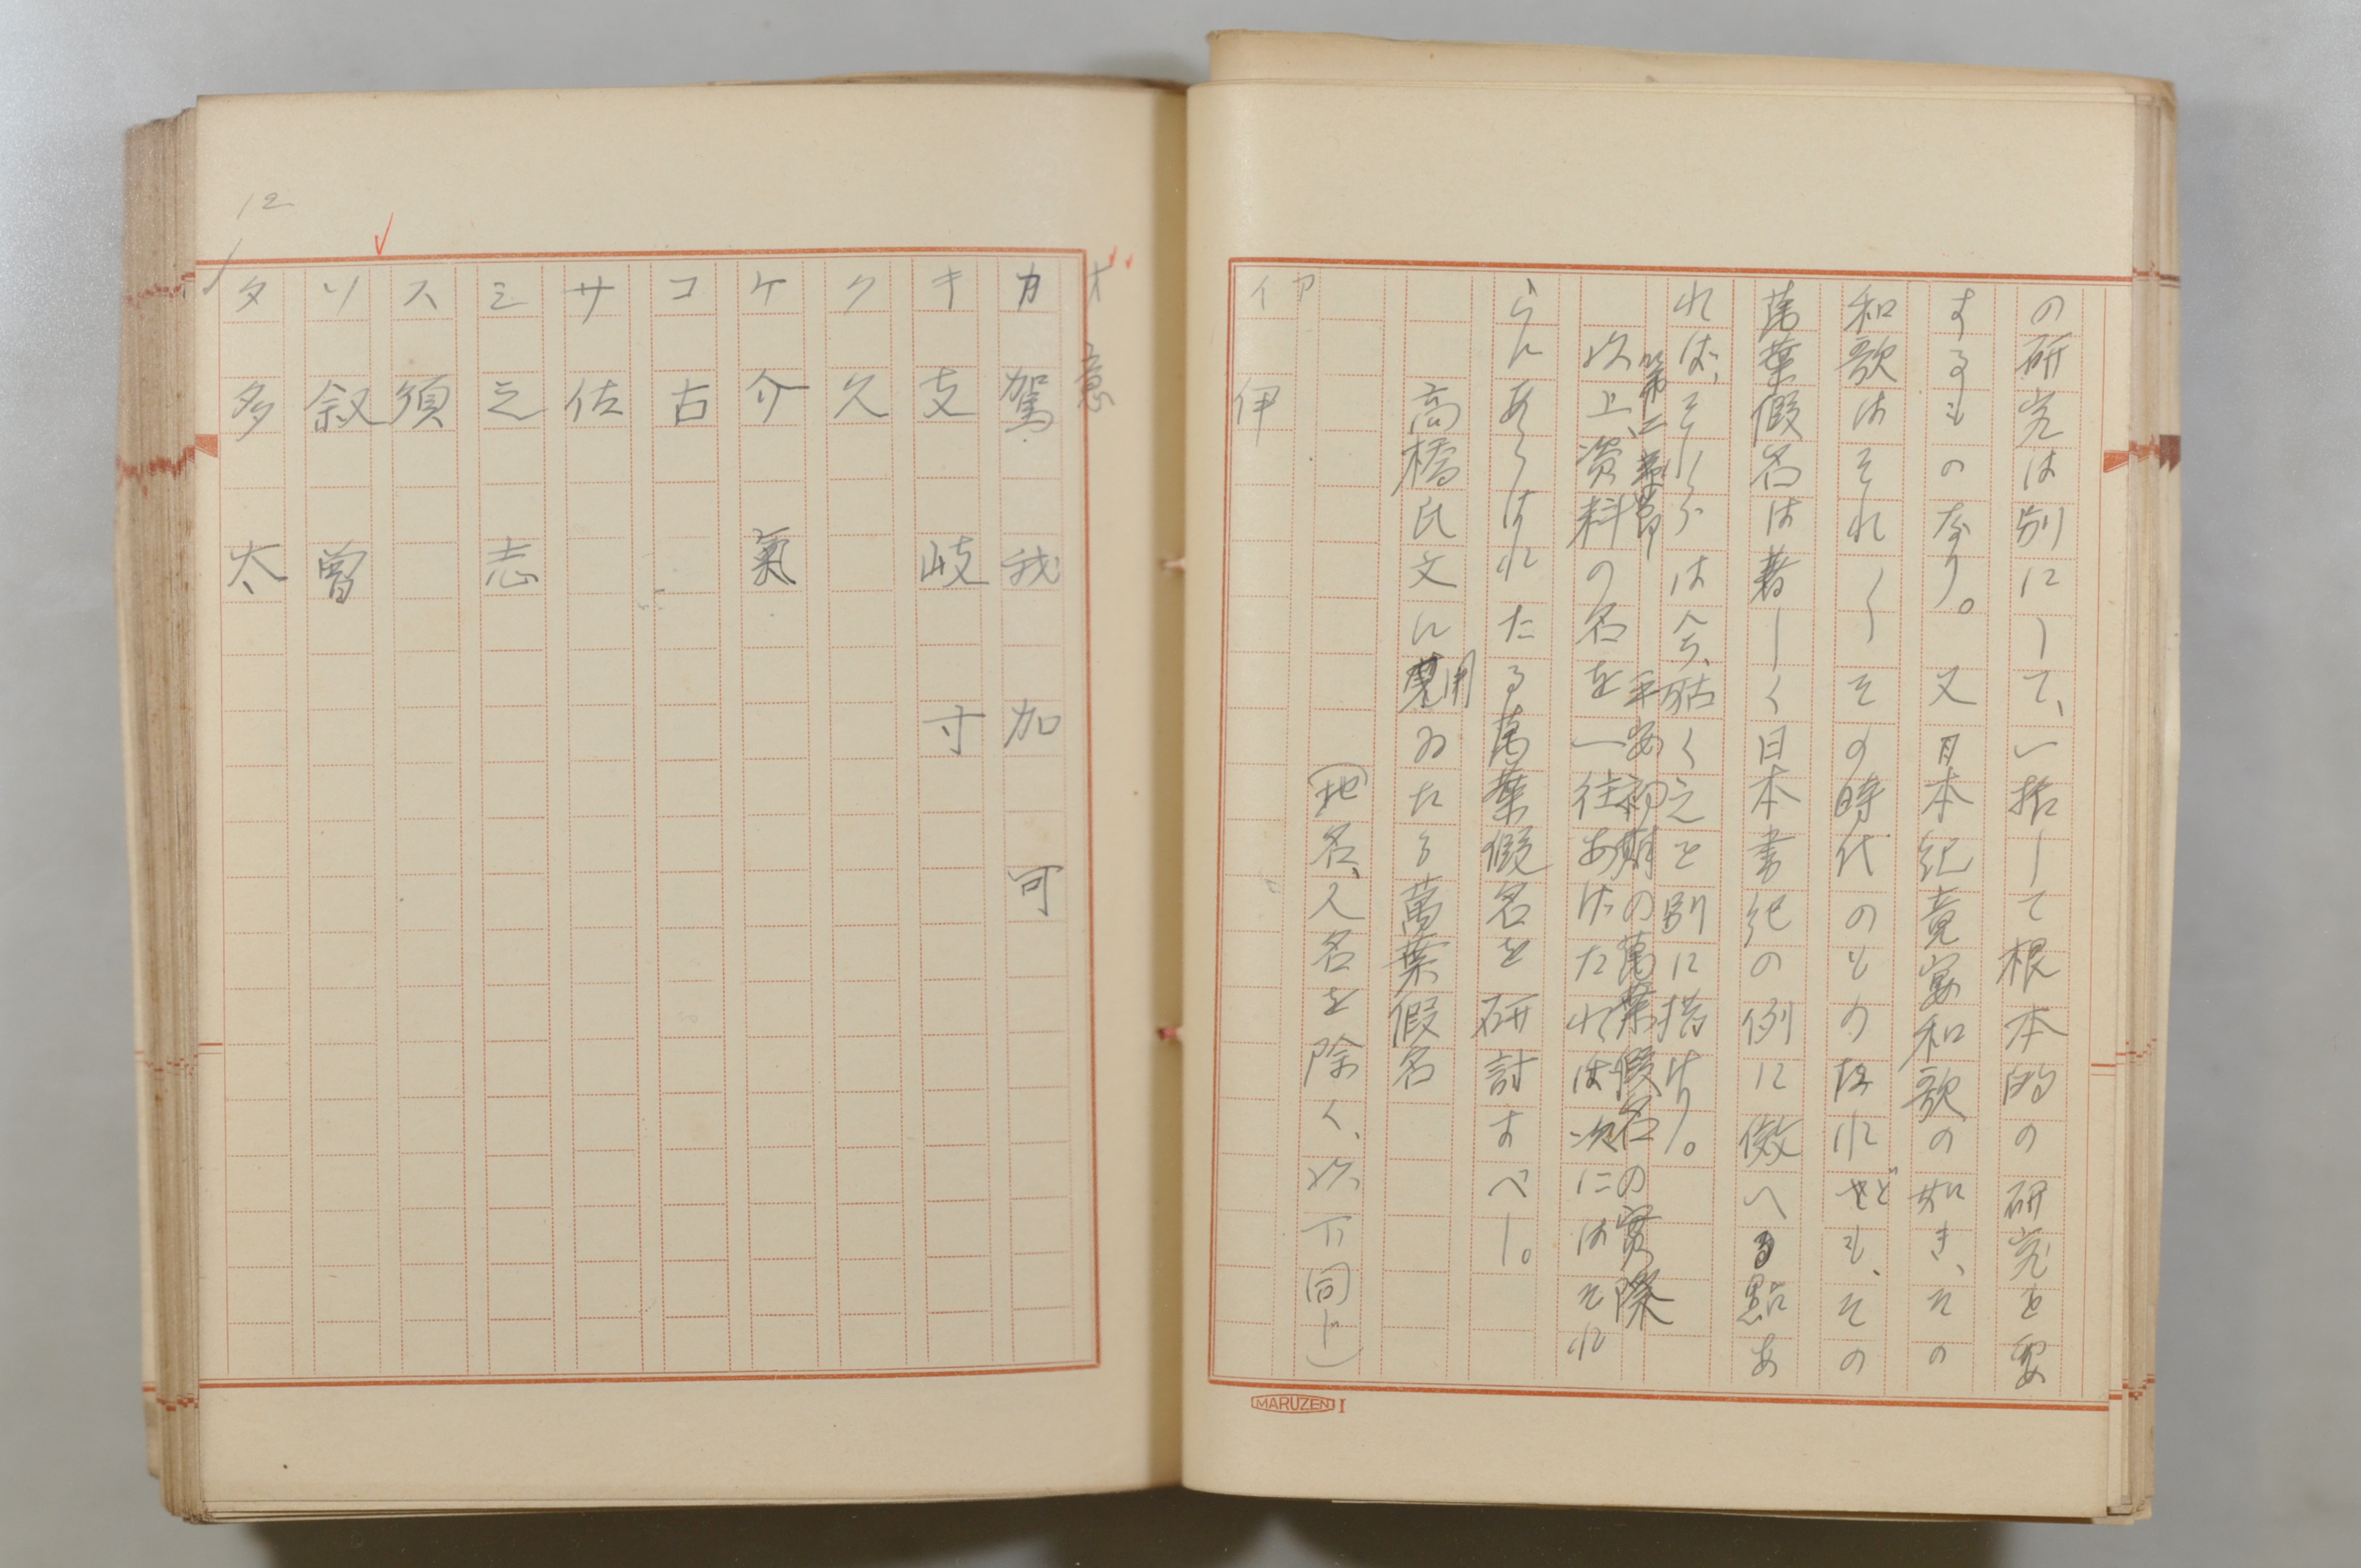 の研究は別にして、一括して根本的の研究を要
するものなり。又日本紀竟宴和歌の如き、その
和歌はそれ〱その時代のものなれども、その
萬葉假名は著しく日本書紀の例に傚へる點あ
れば、それらは今、姑く之を別に措けり。
第二章第 平安初期の萬葉假名の實際
以上、資料の名を一往あげたれば次にはそれ
らにあらはれたる萬葉假名を研討すべし。
高橋氏文に用ゐたる萬葉假名
(地名、人名を除く、以下同じ)
ア
イ 伊
MARUZEN I
12
オ 意
カ 駕 我 加 可
キ 支 岐 寸
ク 久
ケ 介 氣
コ 古
サ 佐
シ 之 志
ス 須
ソ 叙 曾
タ 多 太